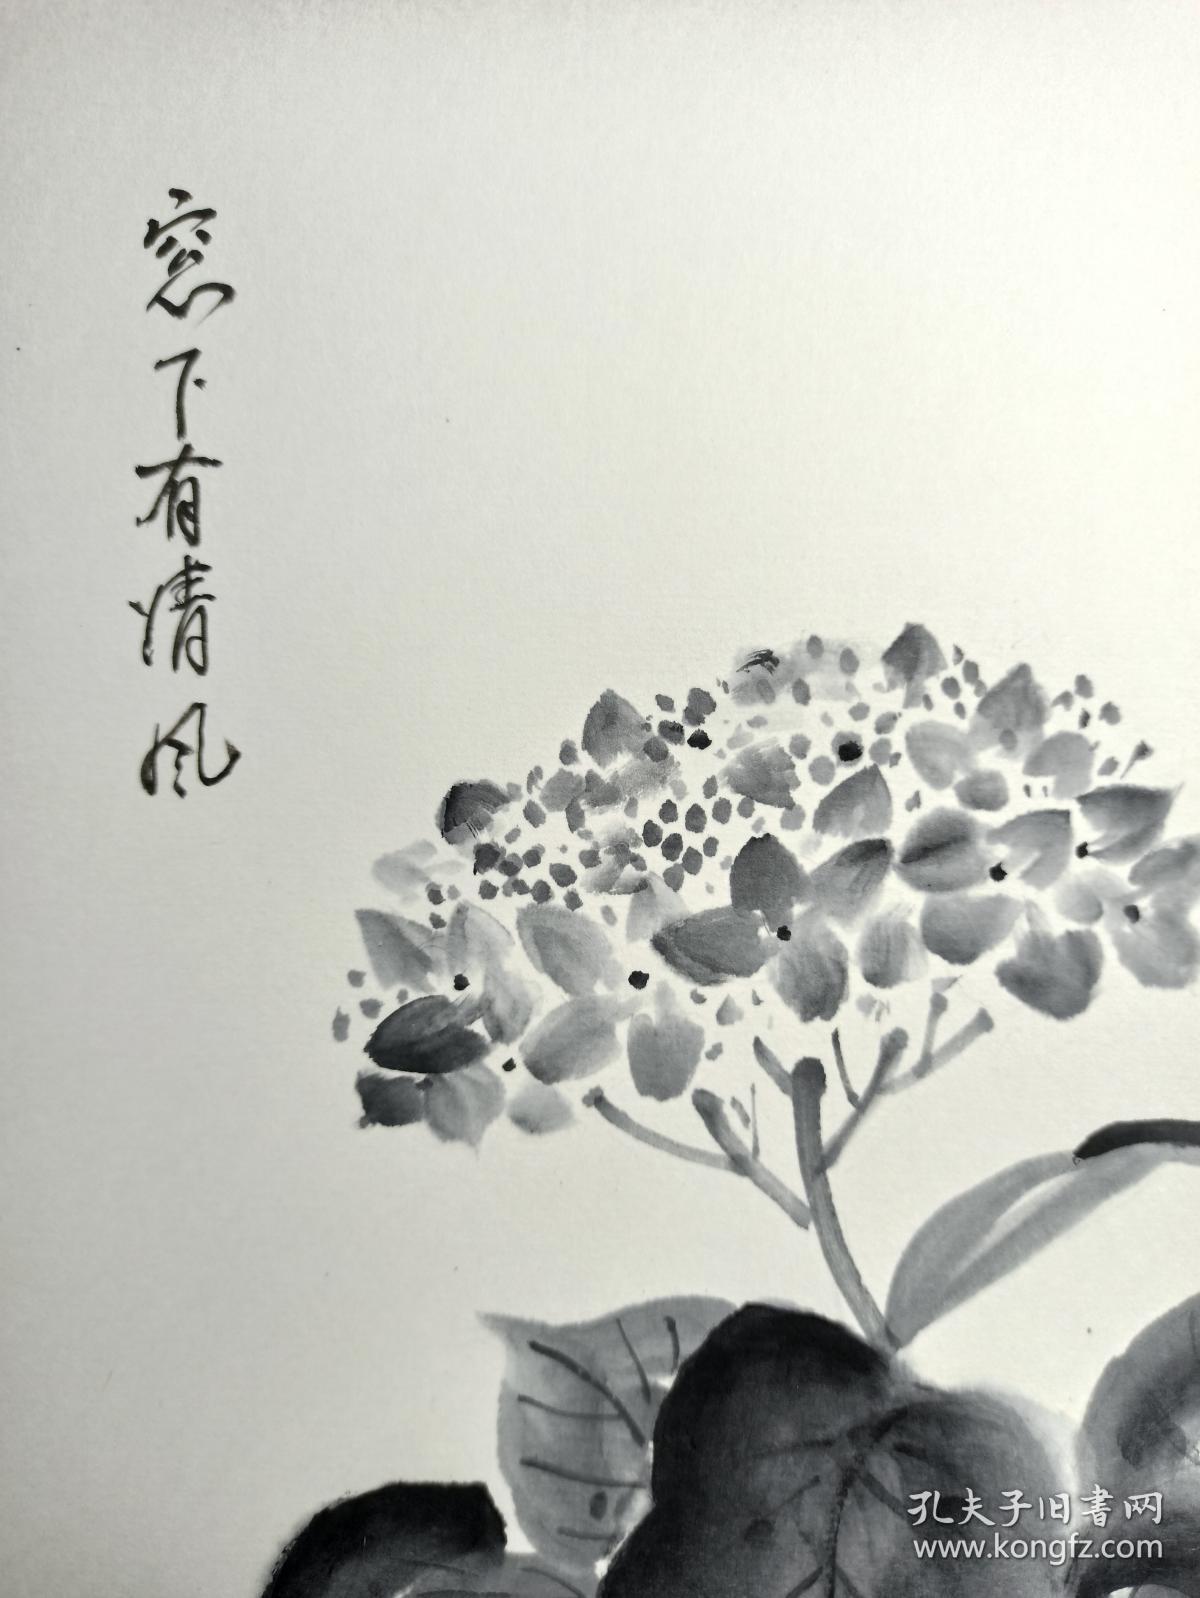 窓下有清风
孔夫子旧書网
www.kongfz.com